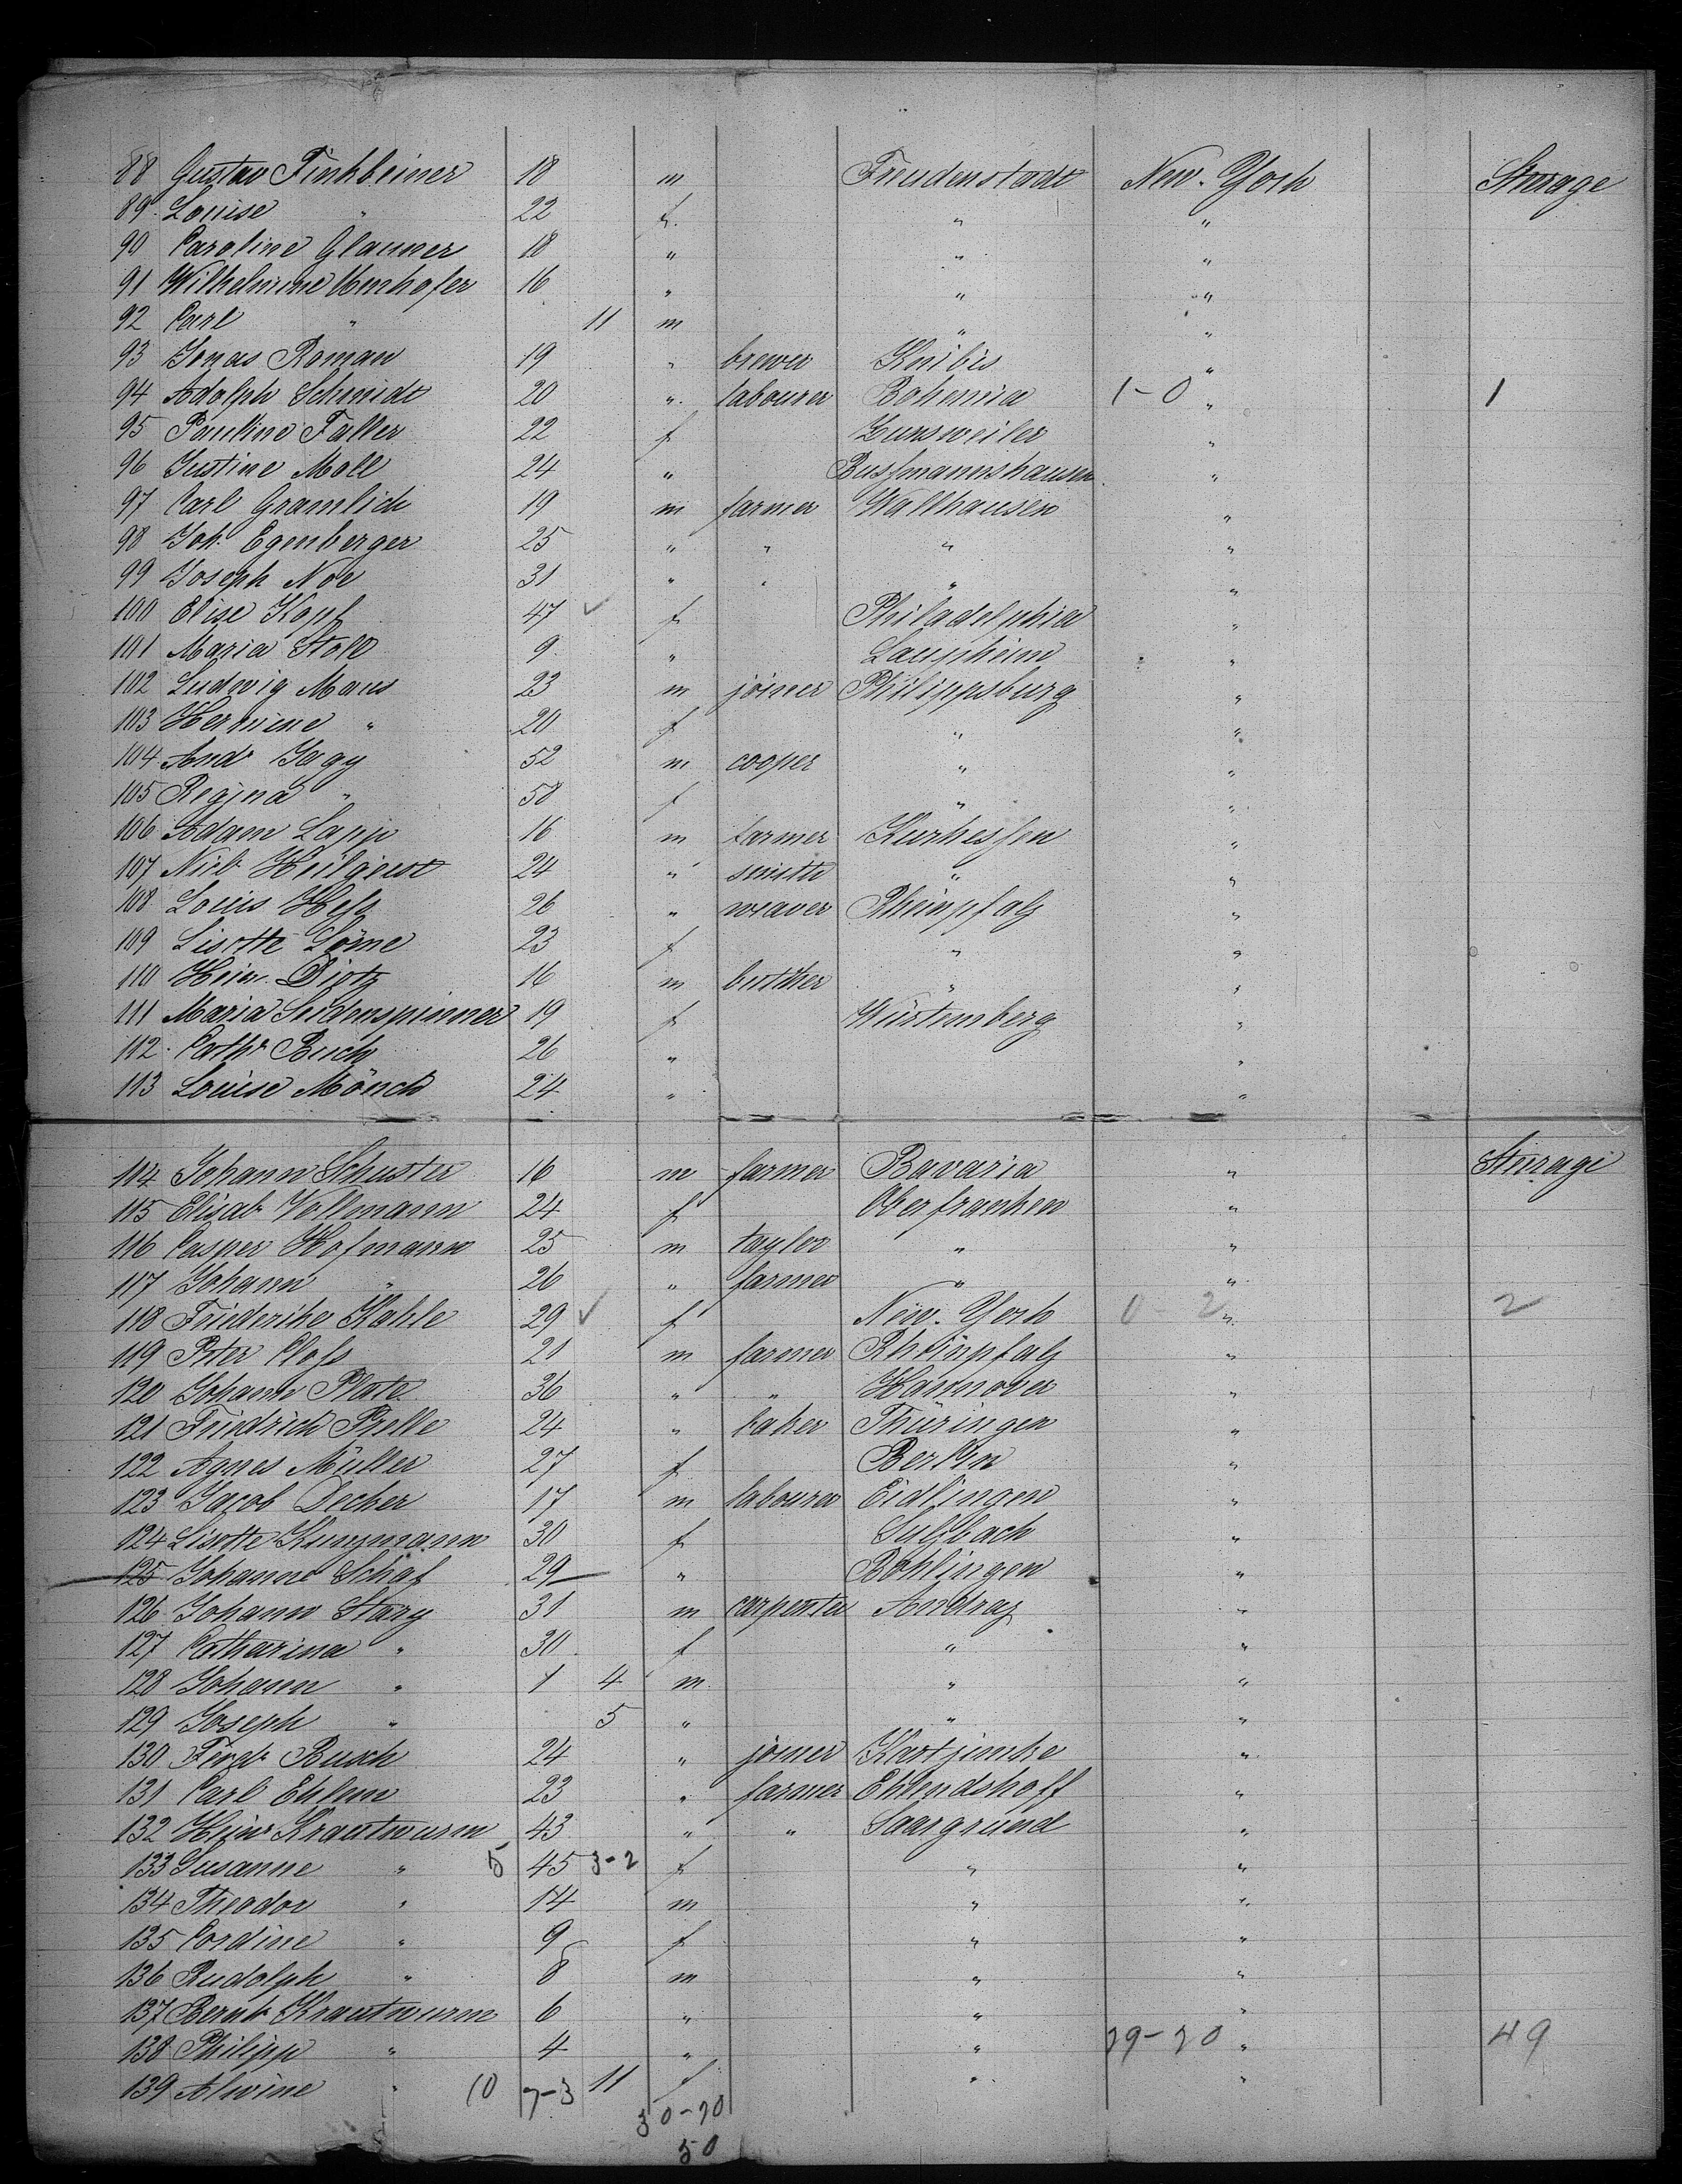 88 Gustav Finkbeiner 18 m Freudenstadt New-York Steerage
89 Louise " 22 f. " "
90 Caroline Glauner 18 " " "
91 Wilhelmine 16 " " "
92 Carl " 11 m " "
93 Jonas Roman 19 " brewer Knibis "
94 Adolph Schmidt 20 " labourer Bohemia 1-0 " 1
95 Pauline Faller 22 f Zunsweiler "
96 Justine Moll 24 " Bussmannshausen "
97 Carl Gramlich 19 m farmer Wallhausen "
98 Joh. Egenberger 25 " " " "
99 Joseph Noe 31 " " " "
100 Elise Kopf 47 ✓ f Philadelphia "
101 Maria Stoll 9 " Laupheim "
102 Ludwig Maus 23 m joiner Philippsburg "
103 Hermine " 20 f " "
104 Andr Jagy 52 m cooper " "
105 Regina " 58 f " "
106 Adam Lapp 16 m farmer Kurhessen "
107 Heilgeist 24 " smith " "
108 Louis Hess 26 " weaver Rheinpfalz "
109 Lisette 23 f " "
110 Heinr. Dietz 16 m butcher " "
111 Maria Seidenspinner 19 f Würtemberg "
112 Cathr Buck 26 " "
113 Louise Mönch 24 " "
114 Johann Schuster 16 m farmer Bavaria " Steerage
115 Elisab Vollmann 24 f Oberfranken "
116 Casper Hofmann 25 m taylor " "
117 Johann " 26 " farmer " "
118 Friederike Kahle 29 ✓ f New-York 0-2 " 2
119 Peter Closs 21 m farmer Rheinpfalz "
120 Johann Plate 36 " " Hannover "
121 Friedrich Prelle 24 " baker Thüringen "
122 Agnes Müller 27 f Berlin "
123 Jacob Decker 17 m labourer Eidlingen "
124 Lisette Kunzmann 30 f Sulzbach "
125 Johanne Schaf 29 " Böhlingen "
126 Johann Stary 31 m carpenter "
127 Catharina " 30 f " "
128 Johann " 1 4 m " "
129 Joseph " 5 " " "
130 Ferdr Busch 24 " joiner "
131 Carl Ehlen 23 " farmer Ehlendshoff "
132 Heinr Krautwurm 43 " " Saargrund "
133 Susanne " 5 45 3-2 f " "
134 Theodor " 14 m " "
135 Cordine " 9 f " "
136 Rudolph " 8 m " "
137 Bernh Krautwurm 6 " " "
138 Philipp " 4 " " 29-20 " 49
139 Alwine " 10 7-3 11 f " "
30-20
50